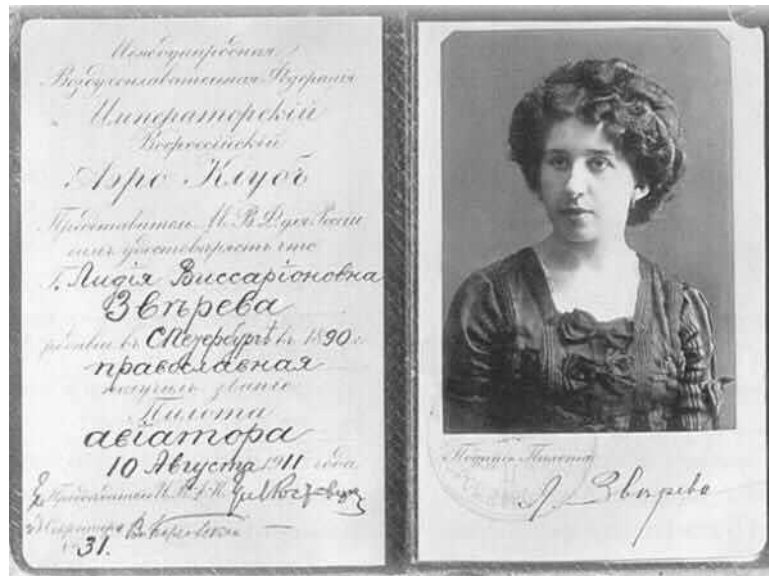 Международная
Воздухоплавательная Федерація
Императорскій
Всероссійскій
Аэро Клубъ
Представитель М. В. Ф. для Россіи
симъ удостовѣряетъ что
Г. Лидія Виссаріоновна
Звѣрева
родивш въ С Петербургѣ въ 1890 г.
православная
получилъ званіе
Пилота
авіатора
10 Августа 1911 года
Предсѣдатель И. В. А. К.
Секретарь
31.
Подпись Пилота
Л. Звѣрева